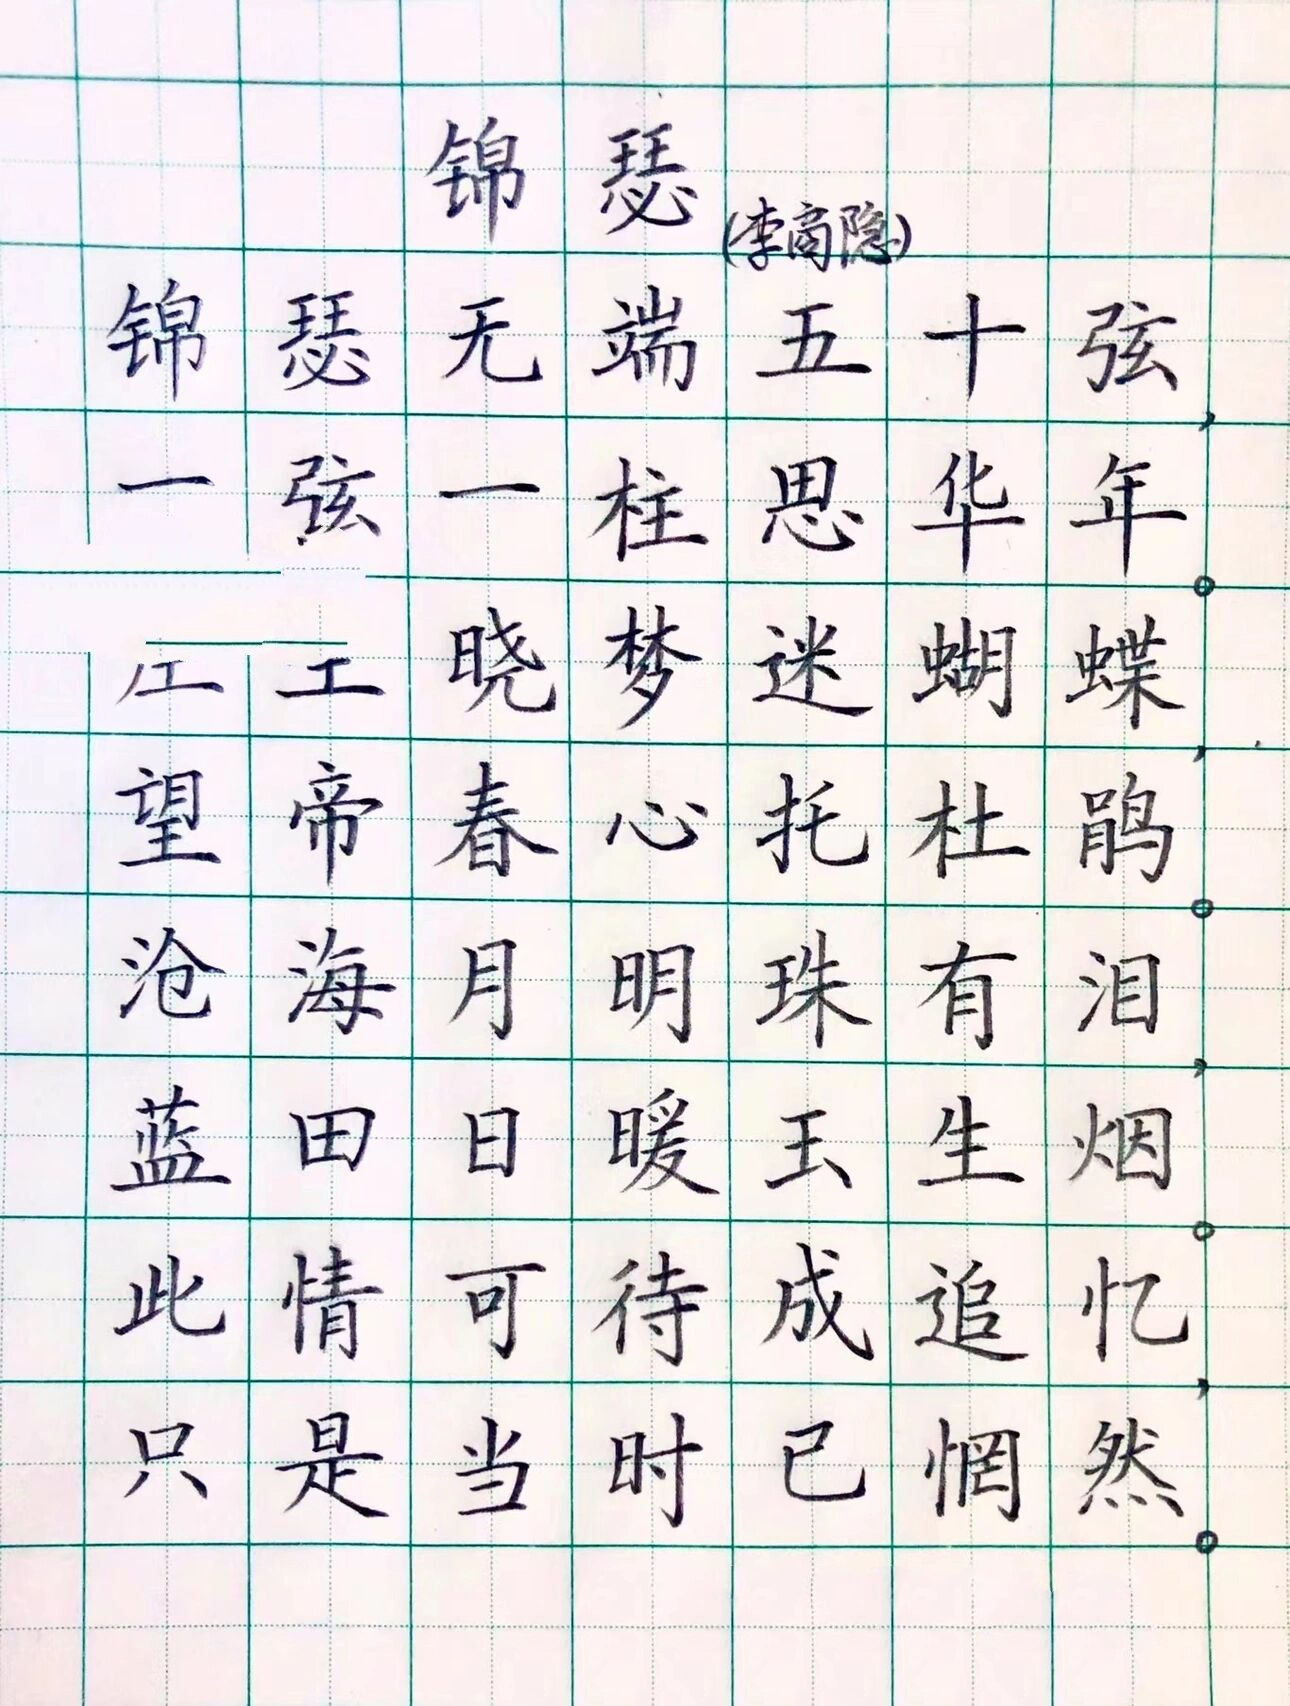 锦瑟
(李商隐)
锦瑟无端五十弦，
一弦一柱思华年。
晓梦迷蝴蝶，
望帝春心托杜鹃。
沧海月明珠有泪，
蓝田日暖玉生烟。
此情可待成追忆，
只是当时已惘然。